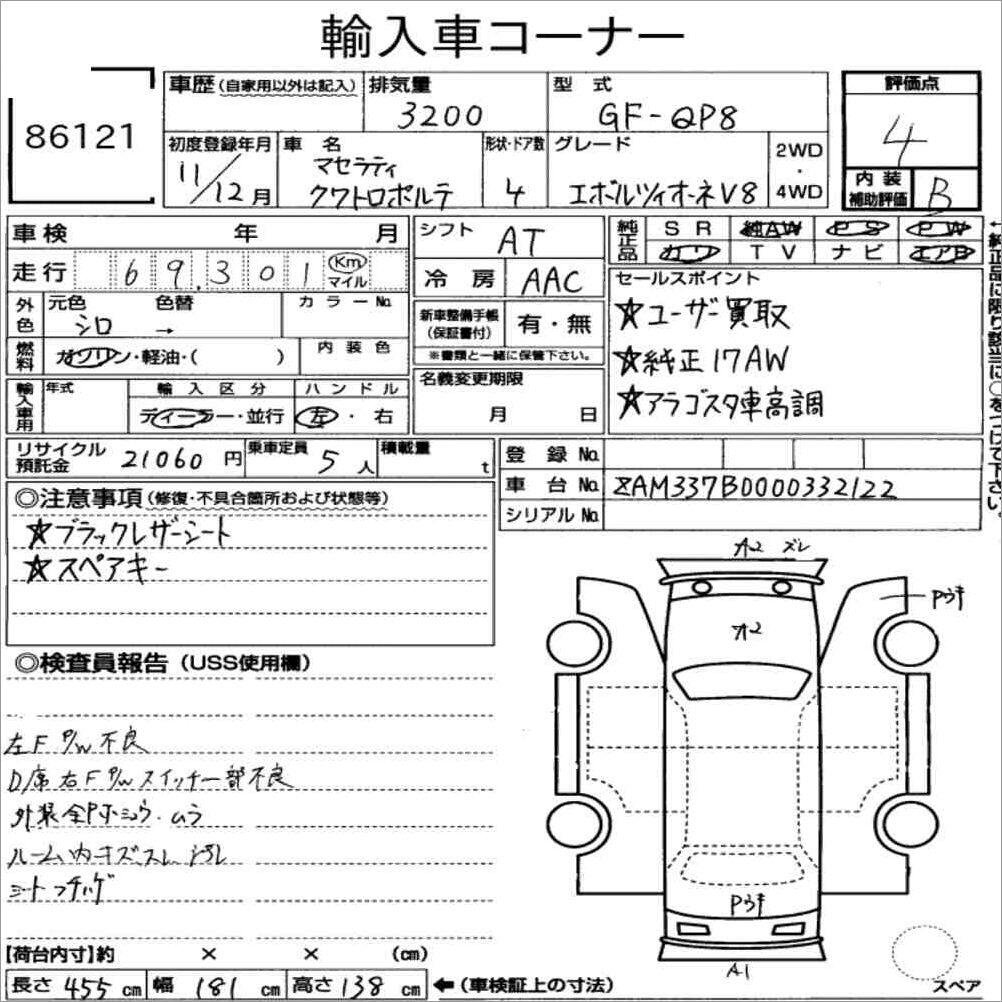 輸入車コーナー
86121
車歴 (自家用以外は記入) 排気量 3200 型式 GF-QP8 評価点 4
初度登録年月 11/12月 車名 マセラティ クワトロポルテ 形状・ドア数 4 グレード エボルツィオーネV8 2WD・4WD 内装補助評価 B
車検 年 月 シフト AT 純正品 SR 純AW PS PW
カワ TV ナビ エアB
走行 69,301 Km マイル 冷房 AAC
外色 元色 シロ 色替 → カラーNo.
新車整備手帳 (保証書付) 有・無
※書類と一緒に保管下さい。
燃料 ガソリン・軽油・( ) 内装色
名義変更期限 月 日
輸入車用 年式 輸入区分 ディーラー・並行 ハンドル 左・右
セールスポイント
☆ユーザー買取
☆純正17AW
☆アラゴスタ車高調
←純正品に限り該当に○をつけて下さい。
リサイクル預託金 21060円 乗車定員 5人 積載量 t
登録No.
車台No. ZAM337B0000332122
シリアルNo.
◎注意事項 (修復・不具合箇所および状態等)
☆ブラックレザーシート
☆スペアキー
◎検査員報告 (USS使用欄)
左F P/W 不良
D席右F P/W スイッチ一部不良
外装全P ムラ
ルーム内キズスレ 汚レ
シート
A2 ズレ
Pウキ
A2
Pウキ
A1
スペア
【荷台内寸】約 × × (cm)
長さ 455 cm 幅 181 cm 高さ 138 cm ←(車検証上の寸法)